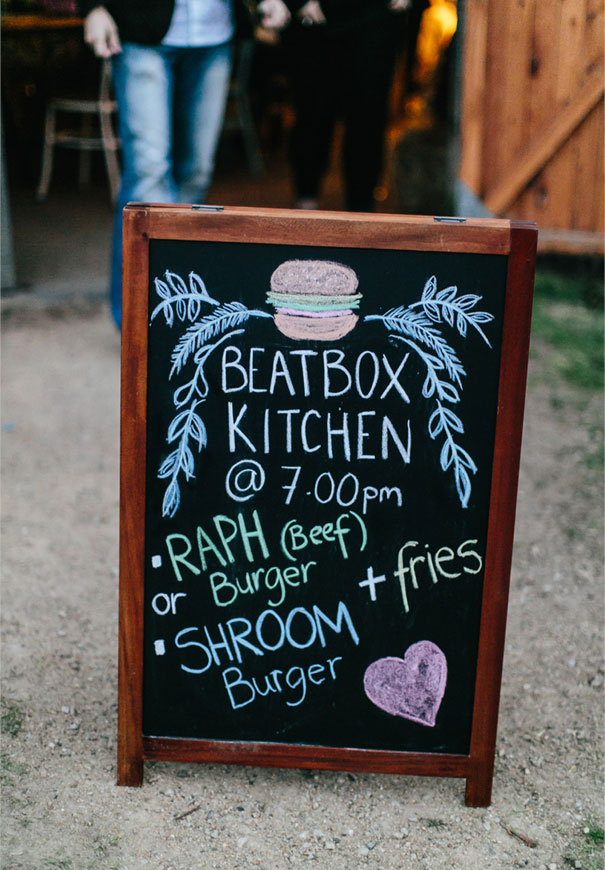 BEATBOX
KITCHEN
@ 7.00pm
· RAPH (Beef)
Burger
or
+ fries
· SHROOM
Burger